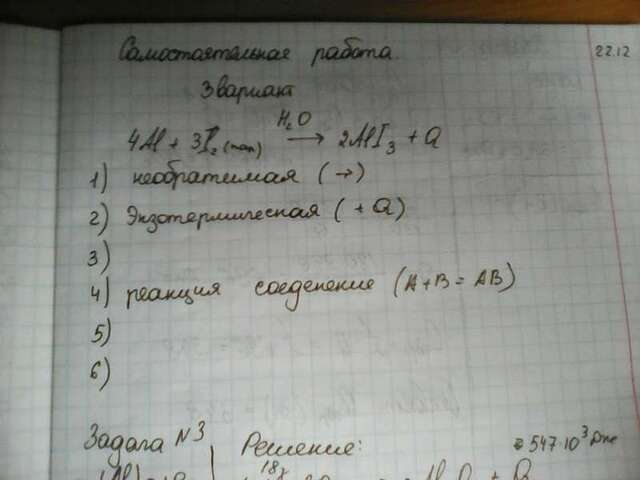 Самостоятельная работа. 22.12
3 вариант
4Al + 3I₂ (тв) H₂O → 2AlI₃ + Q
1) необратимая (→)
2) Экзотермическая (+Q)
3)
4) реакция соеденение (A+B = AB)
5)
6)
Задача №3 Решение: 547·10³ Дже
18г